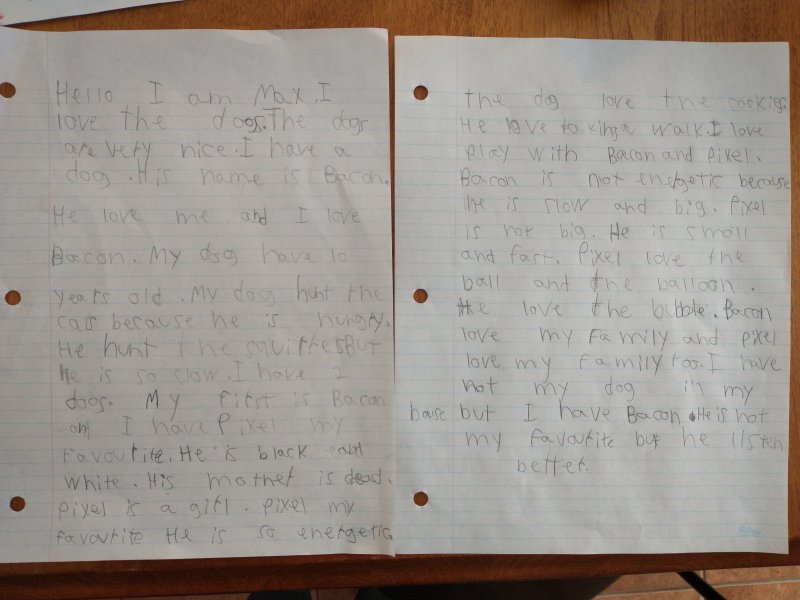 Hello I am Max. I
love the dogs. The dogs
are very nice. I have a
dog. His name is Bacon.
He love me and I love
Bacon. My dog have 10
years old. My dog hunt the
cats because he is hungry.
He hunt the squirrels. But
he is so slow. I have 2
dogs. My first is Bacon
and I have Pixel my
favourite. He is black and
white. His mother is dead.
Pixel is a girl. Pixel my
favourite He is so energetic.
The dog love the cookies.
He love taking a walk. I love
play with Bacon and Pixel.
Bacon is not energetic because
he is slow and big. Pixel
is not big. He is small
and fast. Pixel love the
ball and the balloon.
He love the bubble. Bacon
love my family and pixel
love my family too. I have
not my dog in my
house but I have Bacon. He is not
my favourite but he listen
better.